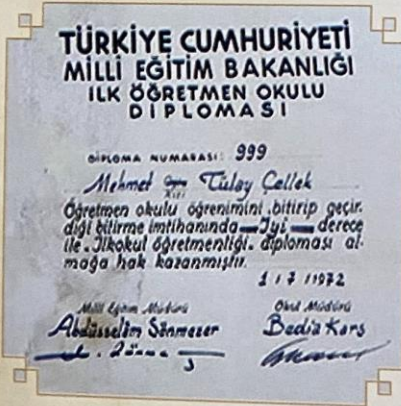 TÜRKİYE CUMHURİYETİ
MİLLİ EĞİTİM BAKANLIĞI
İLK ÖĞRETMEN OKULU
DİPLOMASI
DİPLOMA NUMARASI: 999
Mehmet Kızı Tülay Çellek
Öğretmen okulu öğrenimini bitirip geçir.
diği bitirme imtihanında—İyi—derece
ile İlkokul öğretmenliği diploması al-
mağa hak kazanmıştır.
1 / 7 / 1972
Milli Eğitim Müdürü Okul Müdürü
Abdüsselâm Sönmezer Bedia Karş